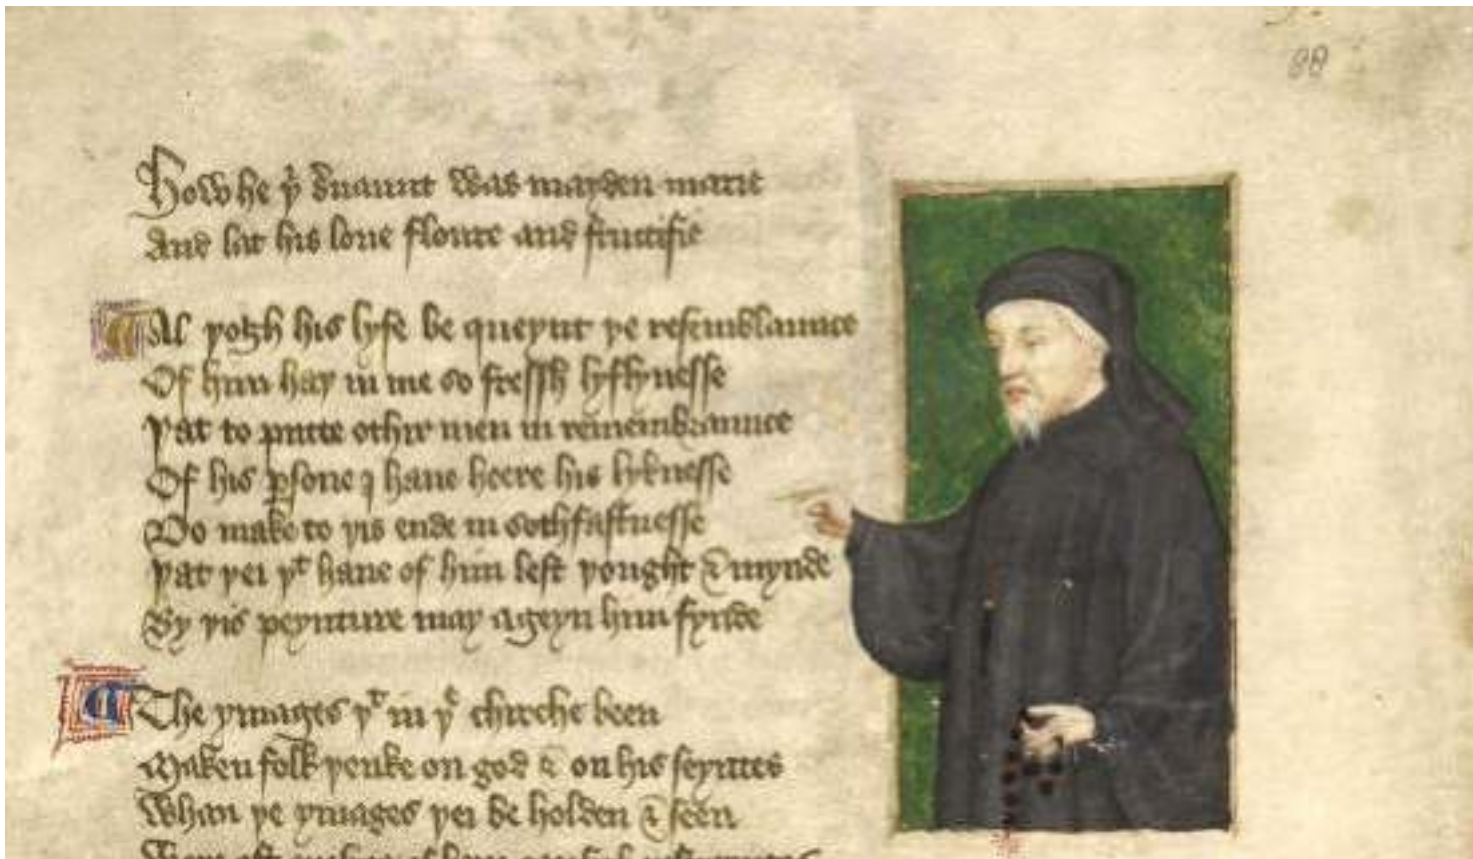 88
How he þͥ s̉uaunt was mayden marie
And lat his loue floure and fructifie
Al þogh his lyfe be queynt þe resemblaunce
Of him haþ in me so fressh lyflynesse
Þat to putte othir men in remembraunce
Of his ꝑsone I haue heere his lyknesse
Do make to þis ende in sothfastnesse
Þat þei þͭ haue of him lest þought & mynde
By þis peynture may ageyn him fynde
The ymages þͭ in þͤ chirche been
Maken folk þenke on god & on his seyntes
Whan þe ymages þei be holden & seen